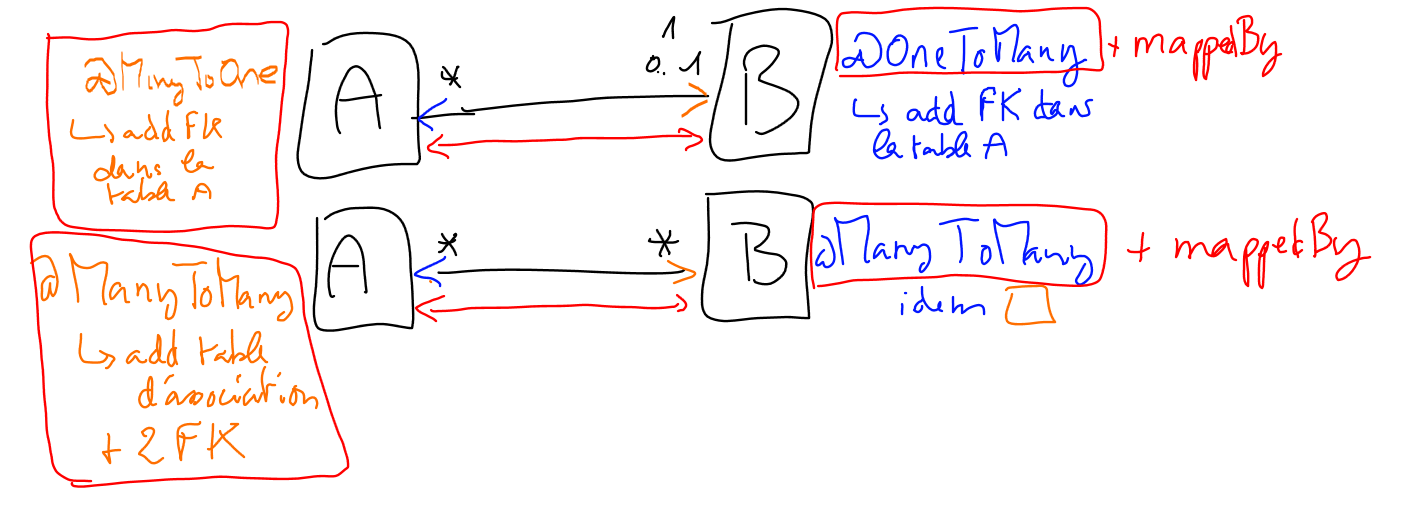 @ManyToOne
↳ add FK
dans la
table A
A
*
1
0..1
B
@OneToMany + mappedBy
↳ add FK dans
la table A
@ManyToMany
↳ add table
d'association
+ 2 FK
A
*
*
B
@ManyToMany + mappedBy
idem